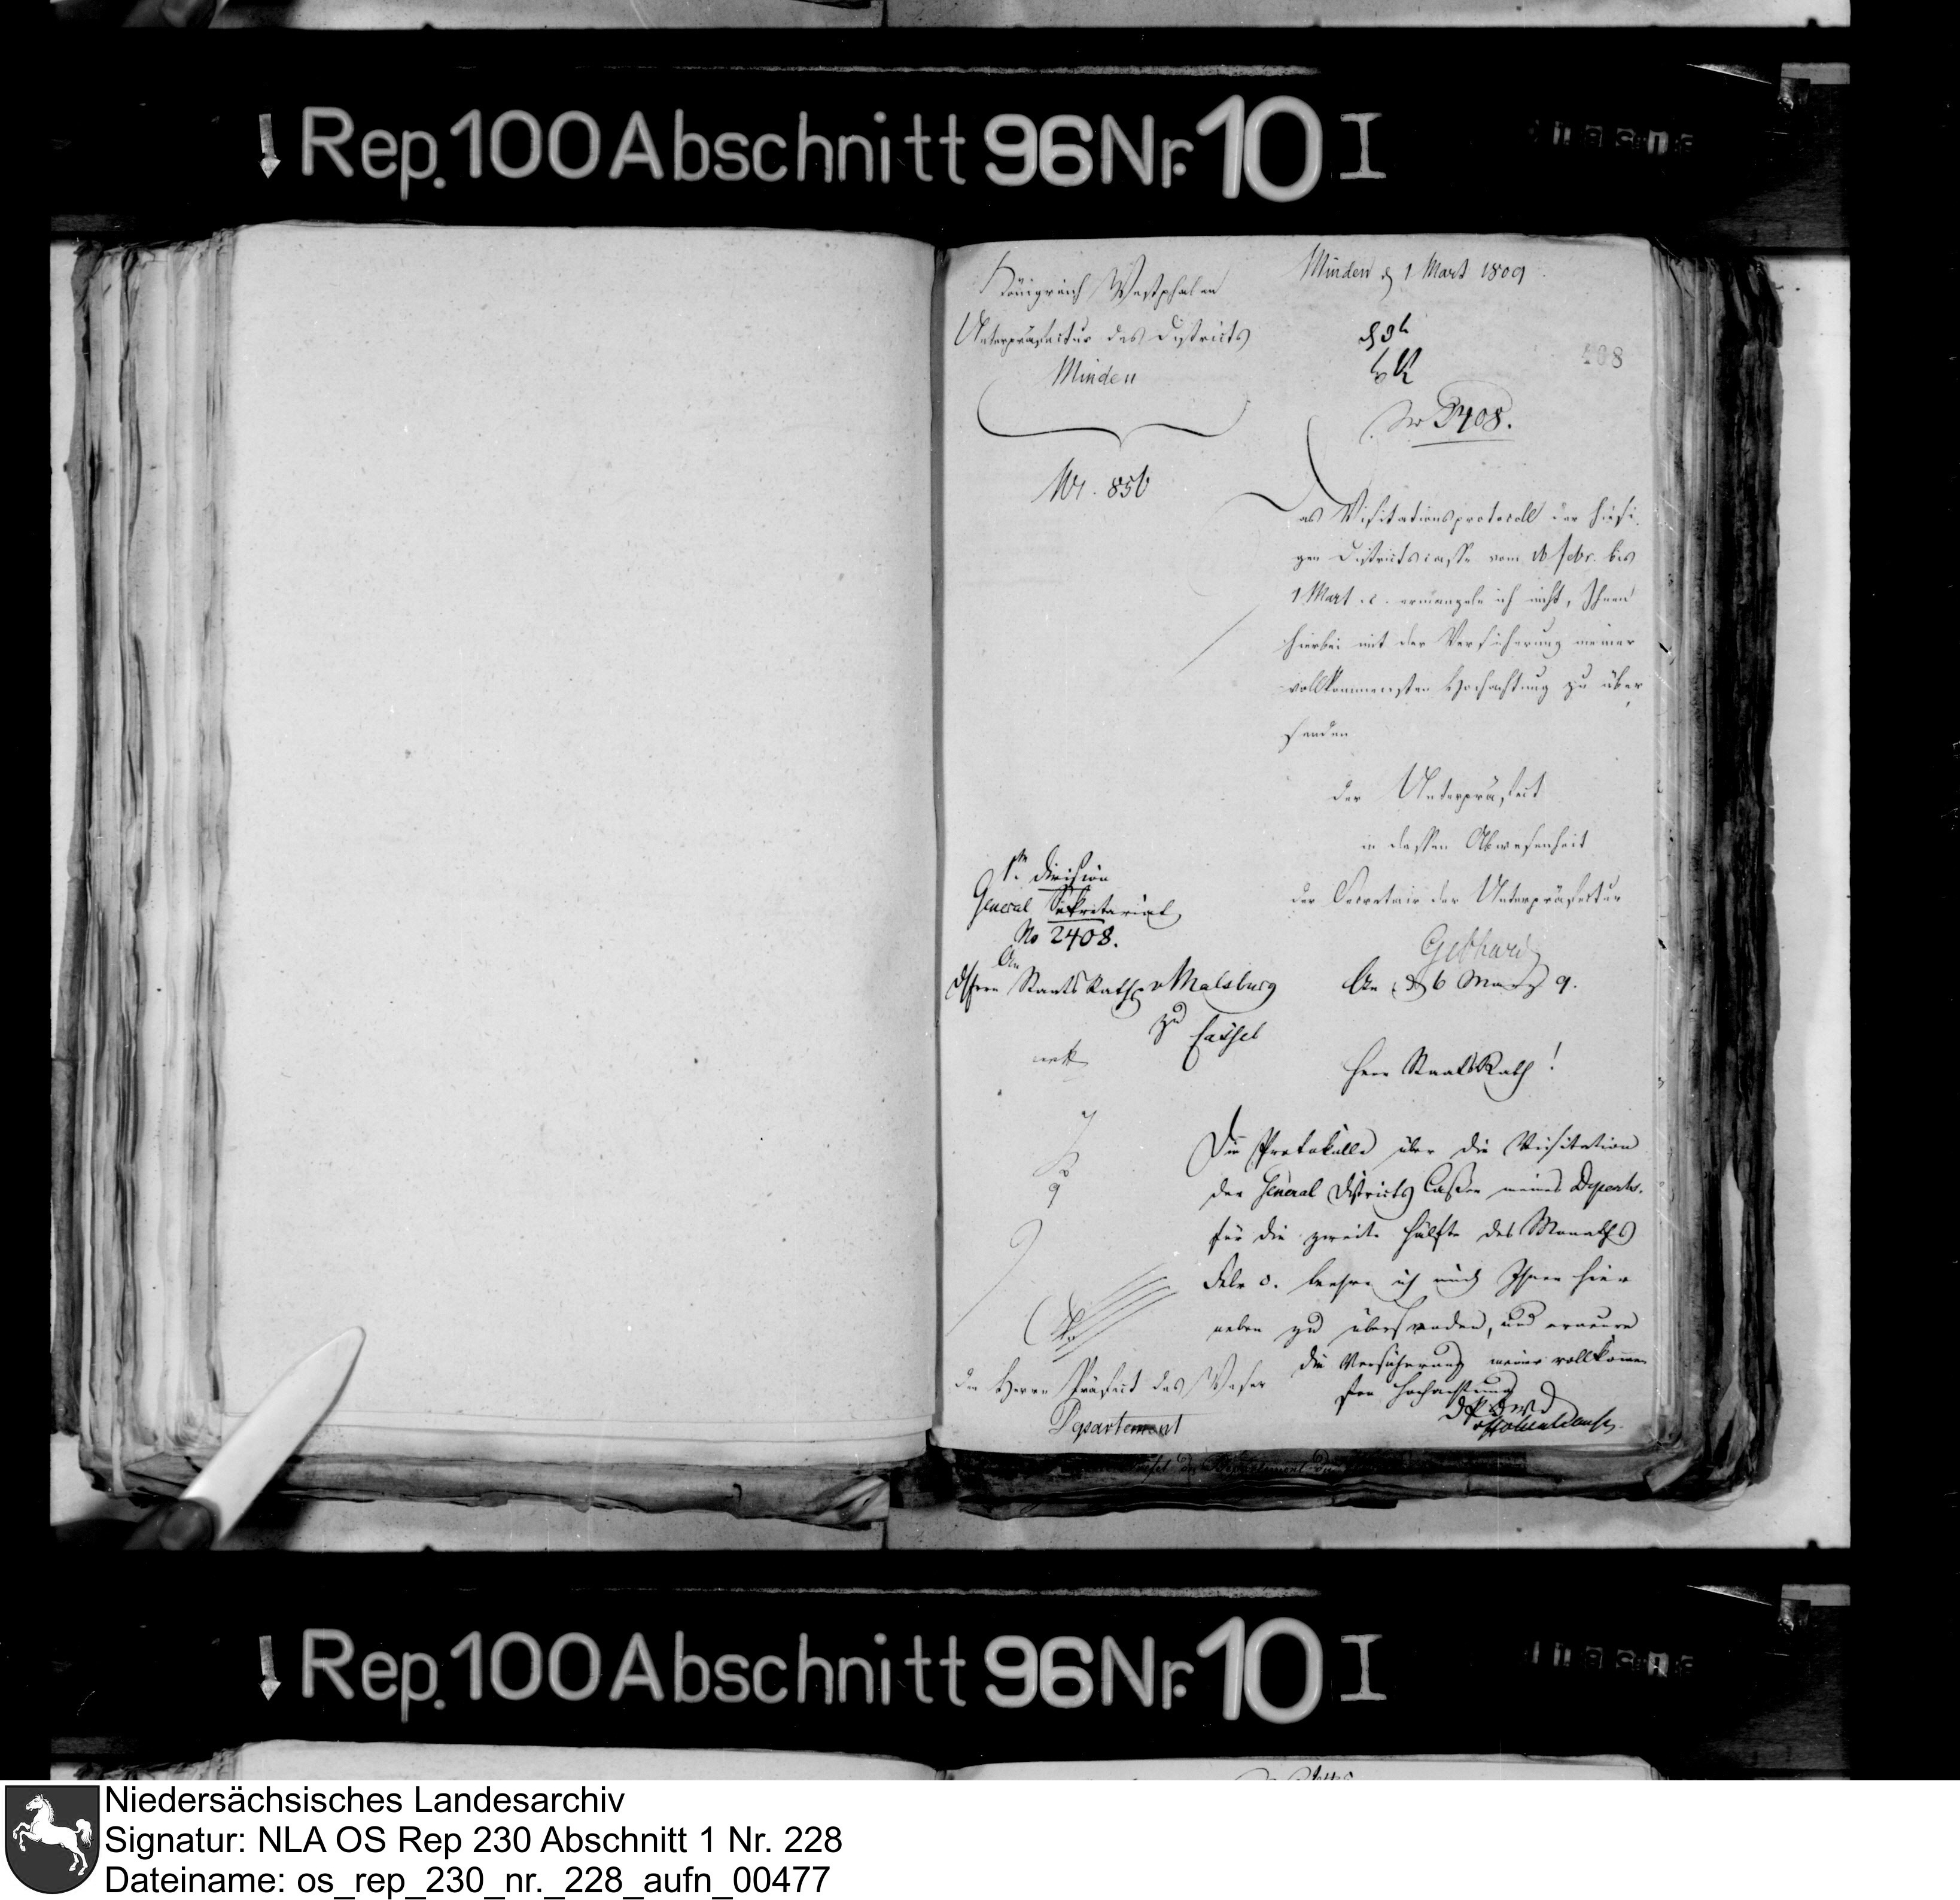 Rep. 100 Abschnitt 96 Nr. 10 I
Königreich Westphalen
Unterpräfectur des Districts
Minden
Nr. 856
Minden d 1 Mart 1809
408
No 2408.
Das Visitationsprotocoll der hiesi
gen Districtscasse vom 16 febr. bis
1 Mart. c. ermangele ich nicht, Ihnen
hierbei mit der Versicherung meiner
vollkommensten Hochachtung zu über
senden
der Unterpräfect
in dessen Abwesenheit
der Secretair der Unterpräfectur
Gebhard
1te Division
General Sekretariat
No 2408.
An
d Herrn Staats Rath v Malsburg
zu Cassel
An d 6 März 9.
Herr Staats Rath!
Die Protokolle über die Visitation
der General Districts Cassen meines Departs.
für die zweite Hälfte des Monaths
Febr c. beehre ich mich Ihnen hier
neben zu übersenden, und erneure
die Versicherung meiner vollkommen
sten Hochachtung
An
den Herrn Präfect des Weser
Departement
Rep. 100 Abschnitt 96 Nr. 10 I
Niedersächsisches Landesarchiv
Signatur: NLA OS Rep 230 Abschnitt 1 Nr. 228
Dateiname: os_rep_230_nr._228_aufn_00477